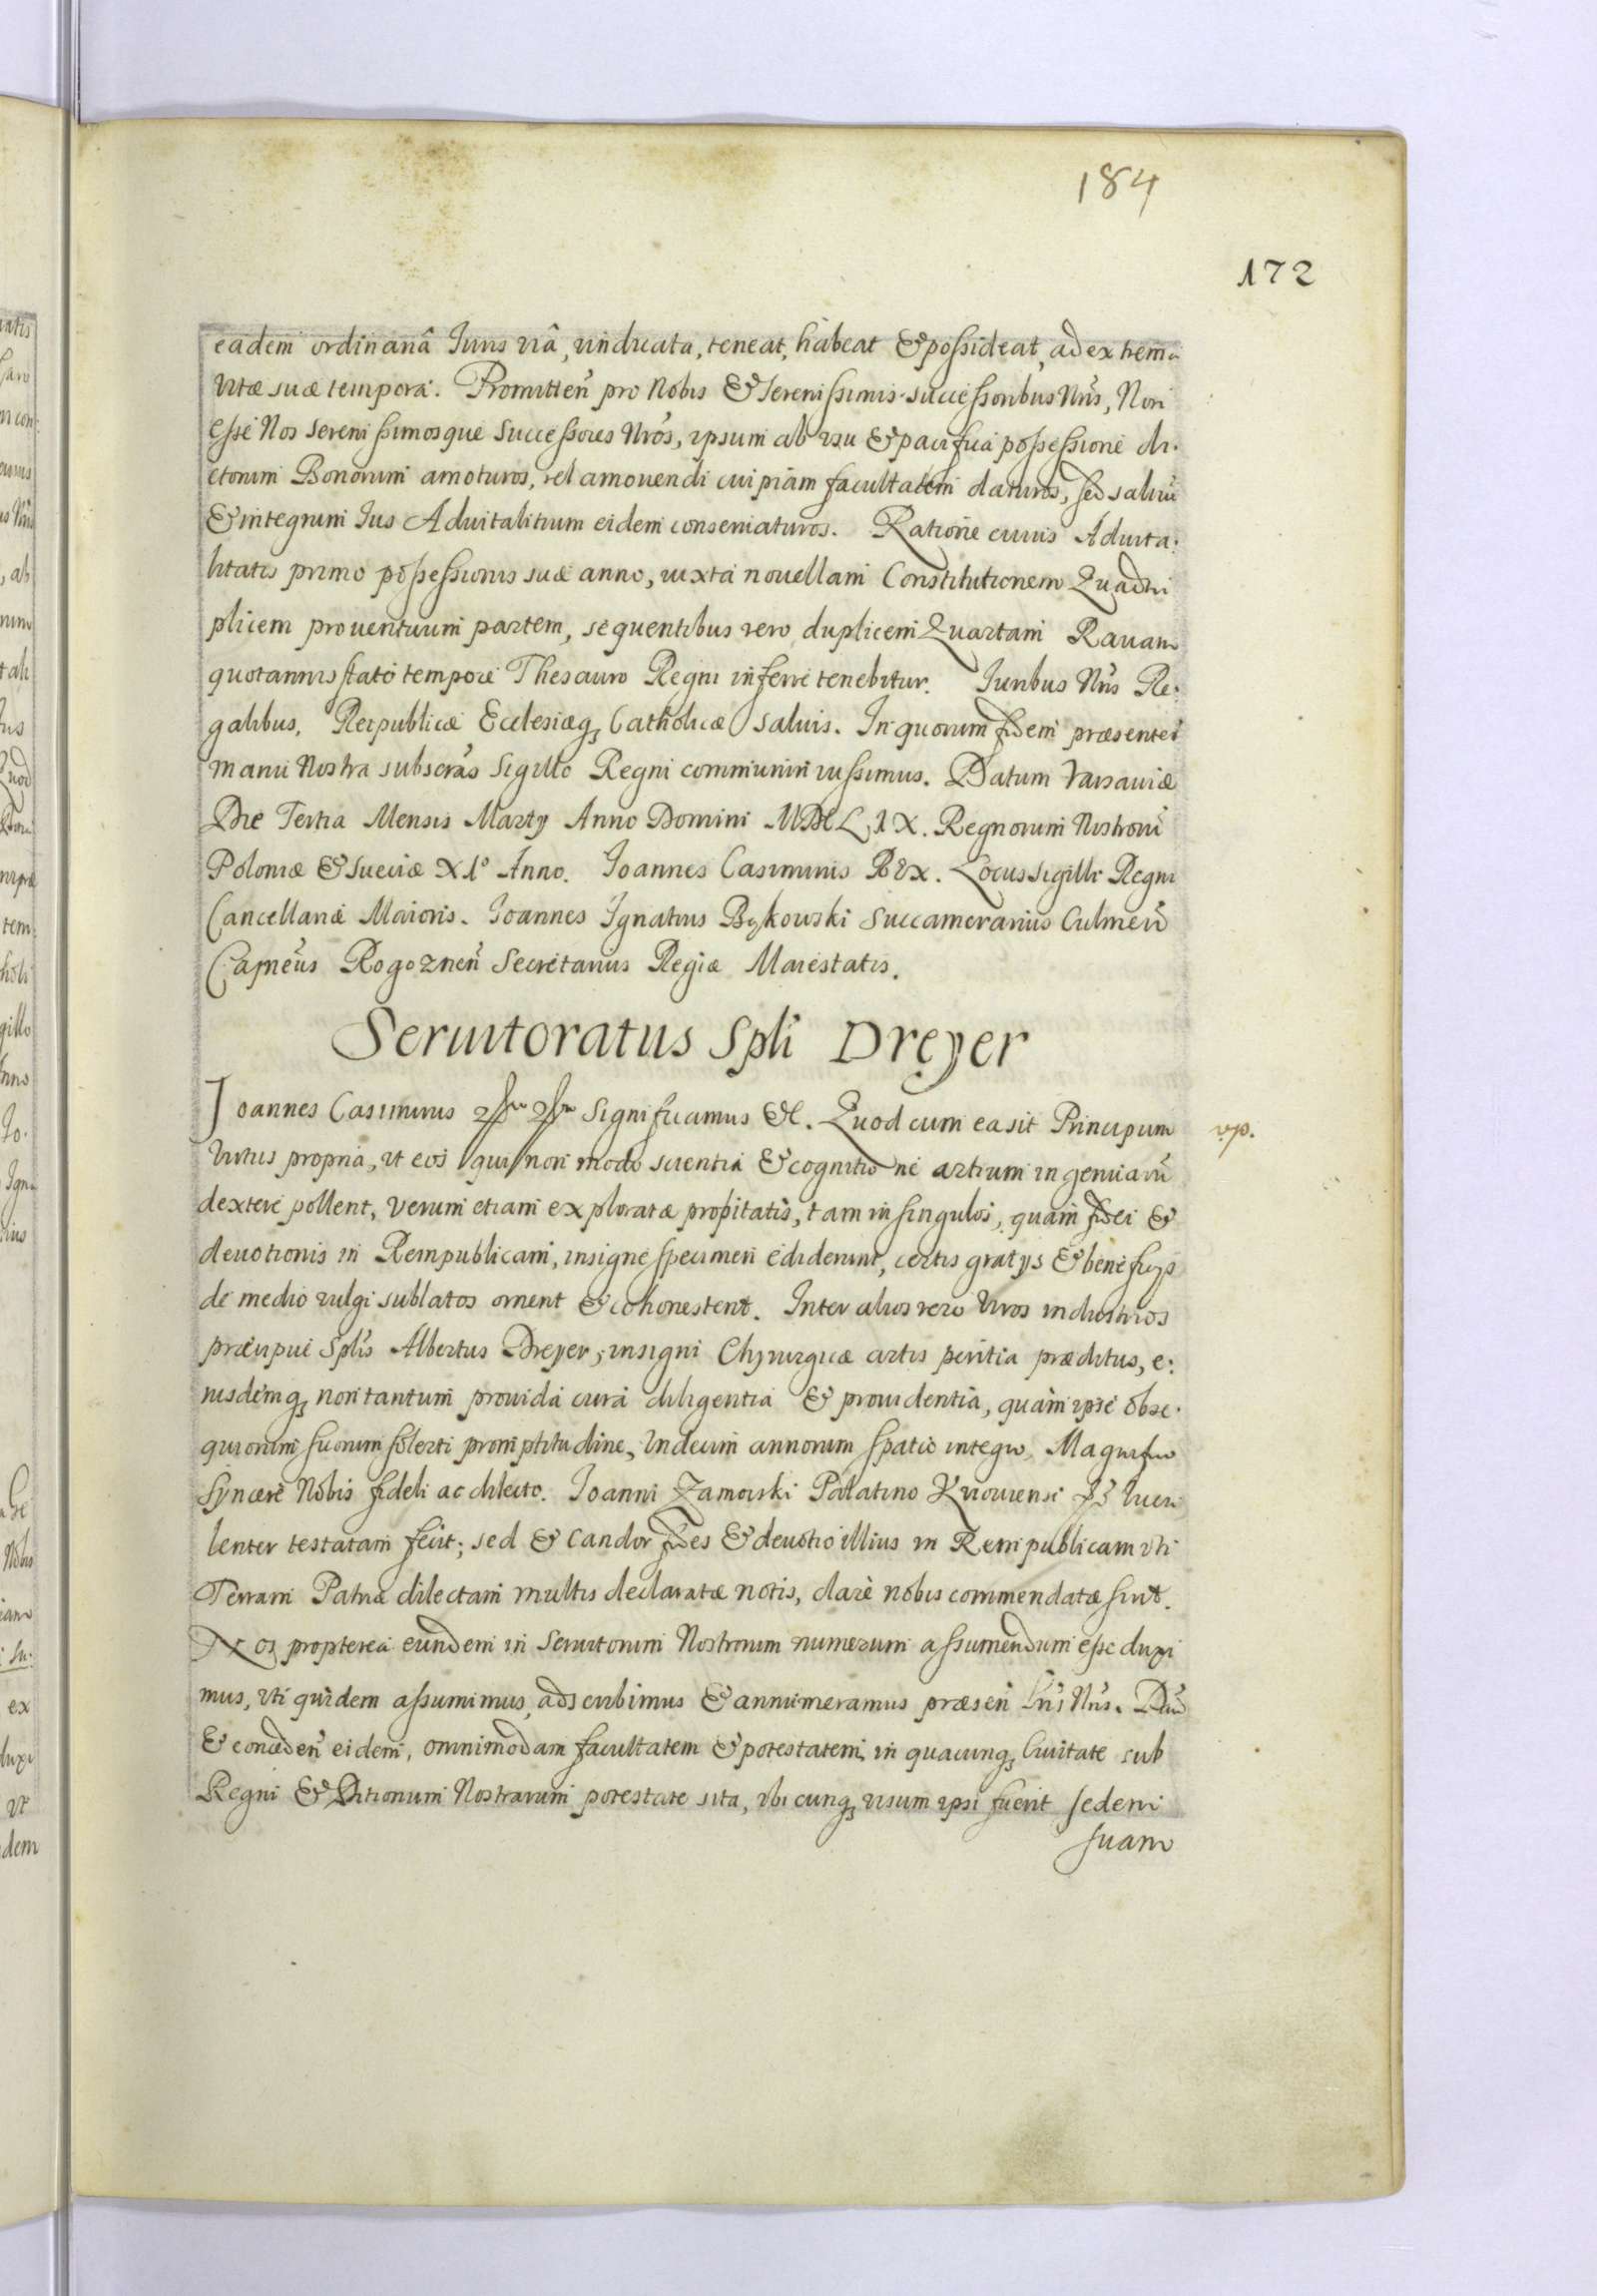 184
172
eadem ordinariâ Iuris viâ, vindicata, teneat, habeat & possideat, ad extrema
vitæ suæ tempora. Promitten̄ pro Nobis & Serenissimis successoribus Nr̄is, Non
esse Nos Serenissimosque Successores Nr̄os, ipsum ab usu & pacifica possessione di:
ctorum Bonorum amoturos, vel amovendi cuipiam facultatem daturos, sed salvū
& integrum Ius Advitalitium eidem conservaturos. Ratione cuius Advita:
litatis primo possessionis suæ anno, iuxta novellam Constitutionem Quadru
plicem proventuum partem, sequentibus vero duplicem Quartam Ravam
quotannis stato tempore Thesauro Regni inferre tenebitur. Iuribus Nr̄is Re:
galibus, Reipublicæ Ecclesiæq; Catholicæ salvis. In quorum fidem præsentes
manu Nostra subscr̄as Sigillo Regni communiri iussimus. Datum Varsaviæ
Die Tertia Mensis Martij Anno Domini MDCLIX. Regnorum Nostrorū
Poloniæ & Sueciæ XI° Anno. Ioannes Casimirus REX. Locus Sigilli Regni
Cancellariæ Maioris. Ioannes Ignatius Bąkowski Succamerarius Culmen̄
Capneūs Rogoznen̄ Secretarius Regiæ Maiestatis.
Servitoratus Spli Dreyer
Ioannes Casimirus Significamus &c. Quod cum ea sit Principum
virtus propria, ut eos qui non modo scientia & cognitione artium ingenuarū
dextere pollent, verum etiam exploratæ probitatis, tam in singulos, quam fidei &
devotionis in Rempublicam, insigne specimen ediderint, certis gratijs & beneficijs
de medio vulgi sublatos ornent & cohonestent. Inter alios vero viros industrios
præcipue Splis Albertus Dreyer, insigni Chyrurgicæ artis peritia præditus, e:
iusdemq; non tantum provida cura diligentia & providentia, quam ipse obse:
quiorum suorum solerti promptitudine, undecim annorum spatio integro, Magnifico
syncere Nobis fideli ac dilecto. Ioanni Zamoiski Palatino Kiioviensi lucu
lenter testatam fecit; sed & candor fides & devotio illius in Rempublicam uti
Terram Patriæ dilectam multis declaratæ notis, clare nobis commendatæ sint.
Nos propterea eundem in Servitorum Nostrorum numerum assumendum esse duxi
mus, uti quidem assumimus, adscribimus & annumeramus præsen̄ Lris Nr̄is. Dan̄
& conceden̄ eidem, omnimodam facultatem & potestatem, in quacunq; Civitate sub
Regni & Ditionum Nostrarum potestate sita, ubicunq; visum ipsi fuerit sedem
suam